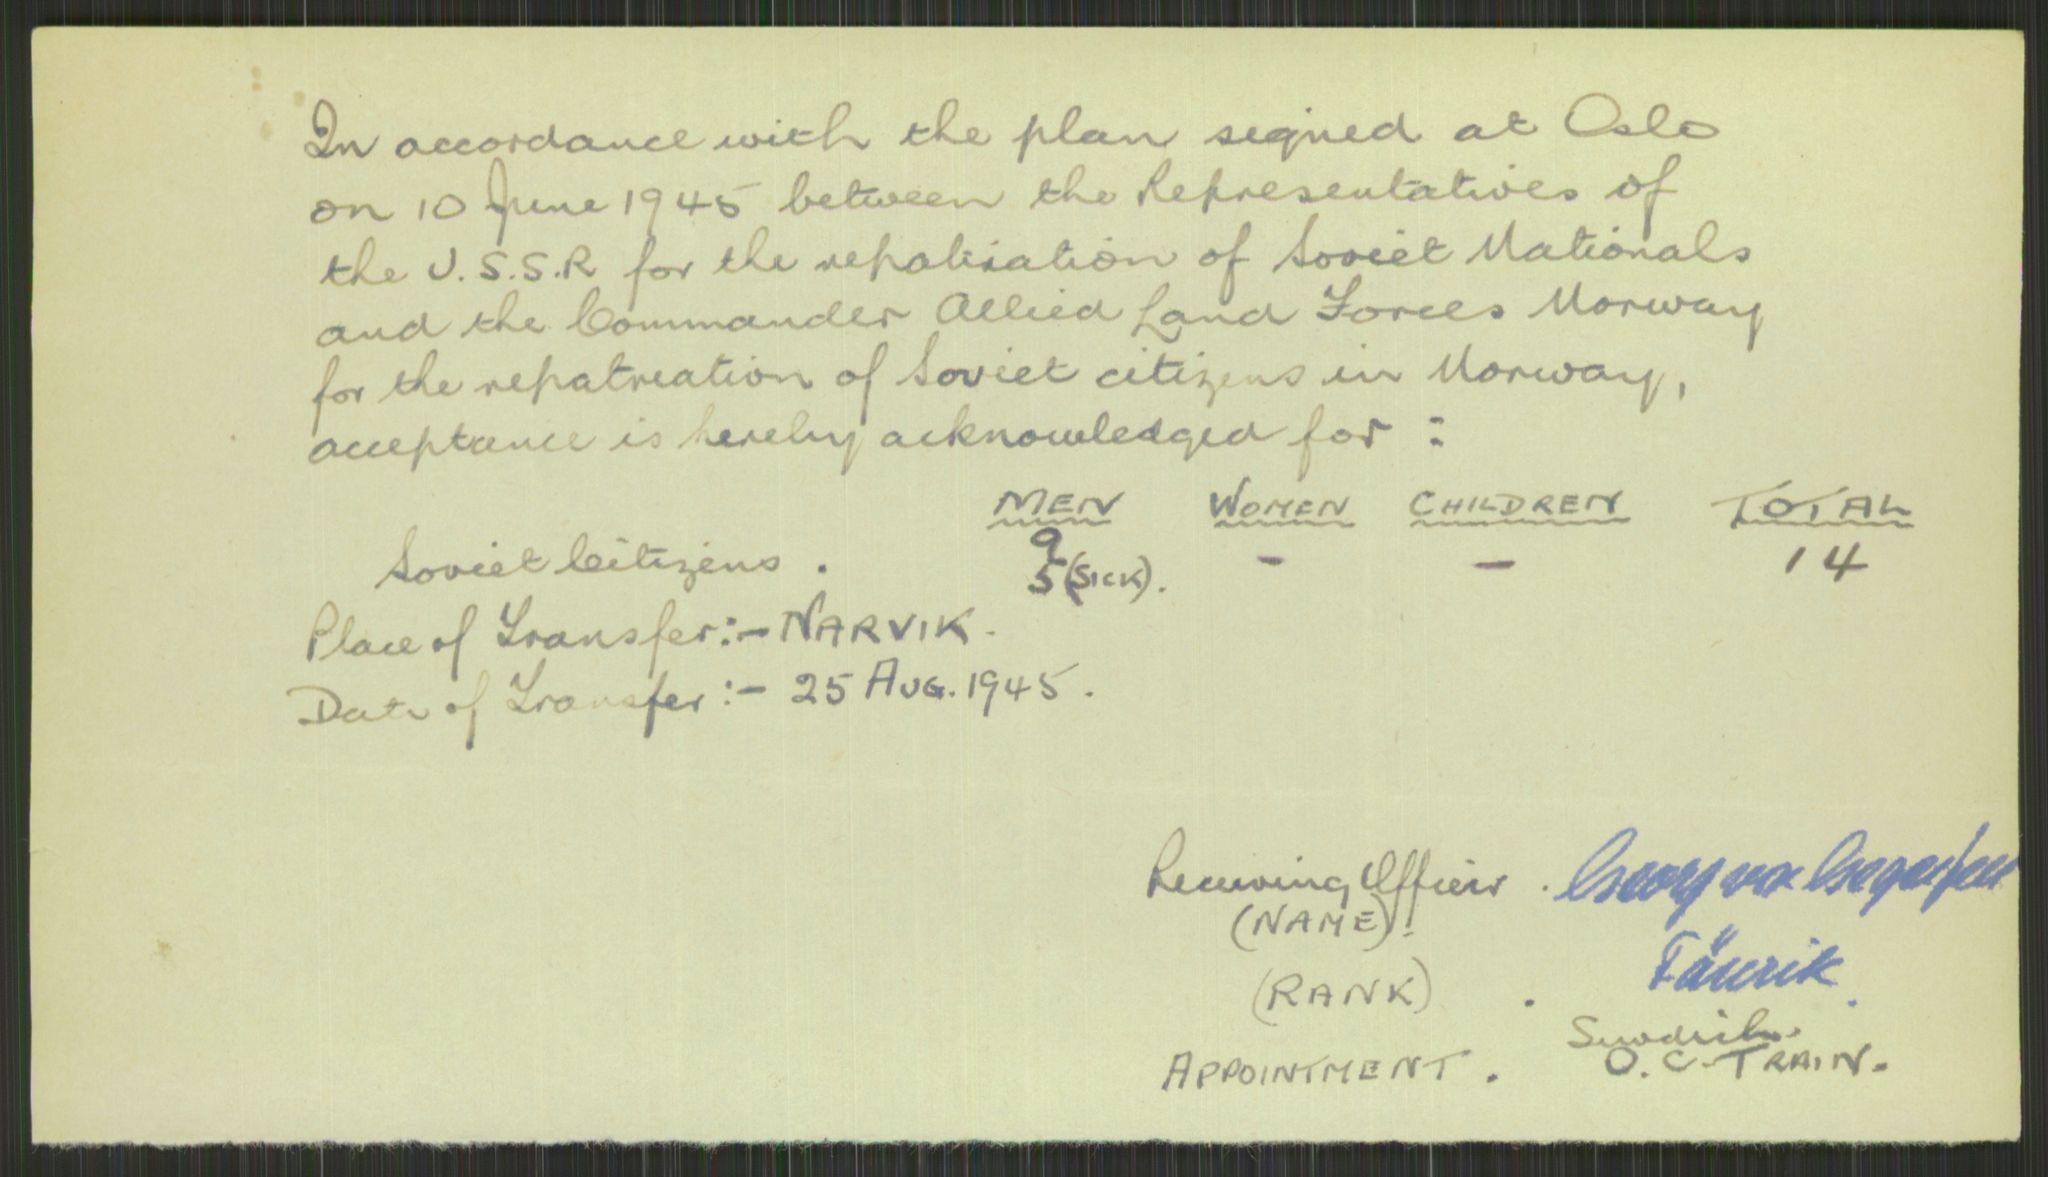 In accordance with the plan signed at Oslo
on 10 June 1945 between the Representatives of
the U.S.S.R for the repatriation of Soviet Nationals
and the Commander Allied Land Forces Norway
for the repatriation of Soviet citizens in Norway,
acceptance is hereby acknowledged for :
MEN WOMEN CHILDREN TOTAL
9
Soviet Citizens . 5 (SICK). - - 14
Place of Transfer :- NARVIK.
Date of Transfer :- 25 AUG. 1945.
Receiving Officer . Georg von
(NAME).
(RANK) . Fänrik.
Swedish.
APPOINTMENT. O.C. TRAIN.